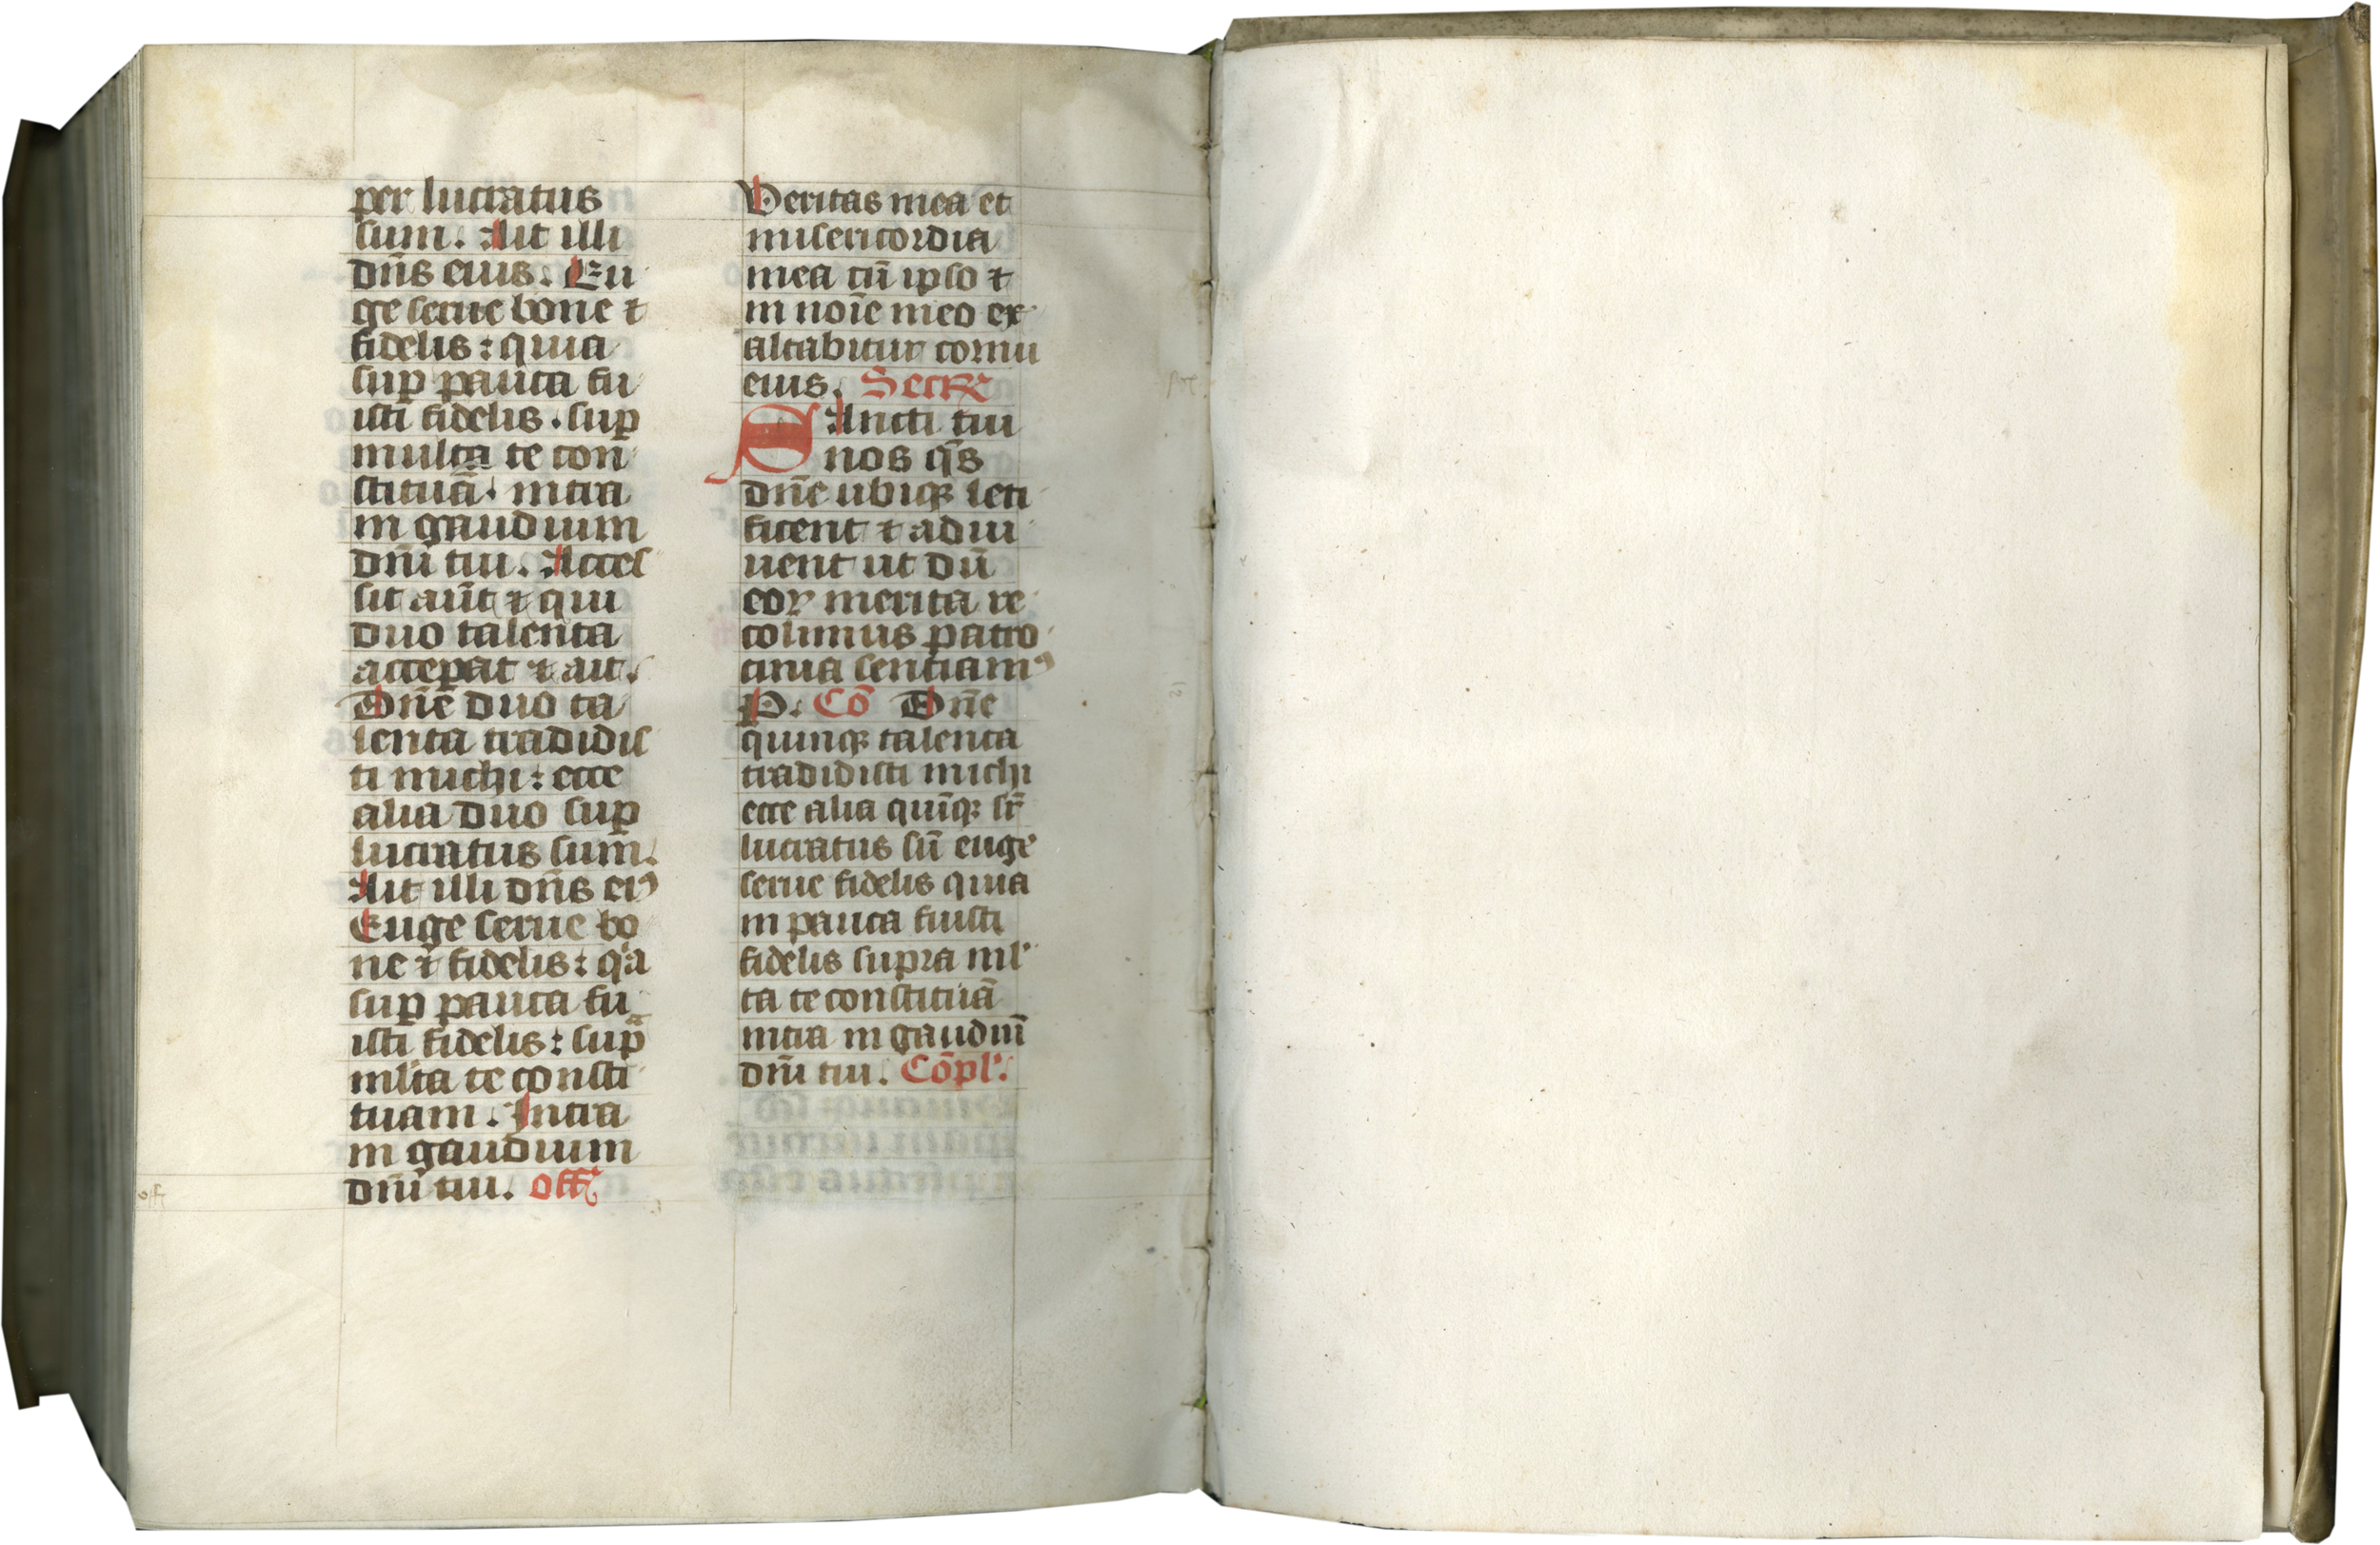 per lucratus
sum. Ait illi
dn̄s eius. Eu
ge serue bone ⁊
fidelis: quia
suꝑ pauca fu
isti fidelis. suꝑ
multa te con
stituā. intra
in gaudium
dn̄i tui. Acces
sit aūt ⁊ qui
duo talenta
acceꝑat ⁊ ait.
Dn̄e duo ta
lenta tradidis
ti michi: ecce
alia duo suꝑ
lucratus sum.
Ait illi dn̄s eiꝰ
Euge serue bo
ne ⁊ fidelis: qͥa
suꝑ pauca fu
isti fidelis: supᷓ
ml̓ta te consti
tuam. Intra
in gaudium
dn̄i tui. Off̓
Veritas mea et
misericordia
mea cū ipso ⁊
in noīe meo ex
altabitur cornu
eius. Secr̄
SAncti tui
nos qs̄
dn̄e ubiqꝫ leti
ficent ⁊ adiu
uent ut dū
eoꝝ merita re
colimus patro
cinia sentiamꝰ
P. Cō Dn̄e
quinqꝫ talenta
tradidisti michi
ecce alia quīqꝫ sr̄
lucratus sū euge
serue fidelis quia
in pauca fuisti
fidelis supra ml̓
ta te constituā
intra in gaudiū
dn̄i tui. Cōpl̓.
off